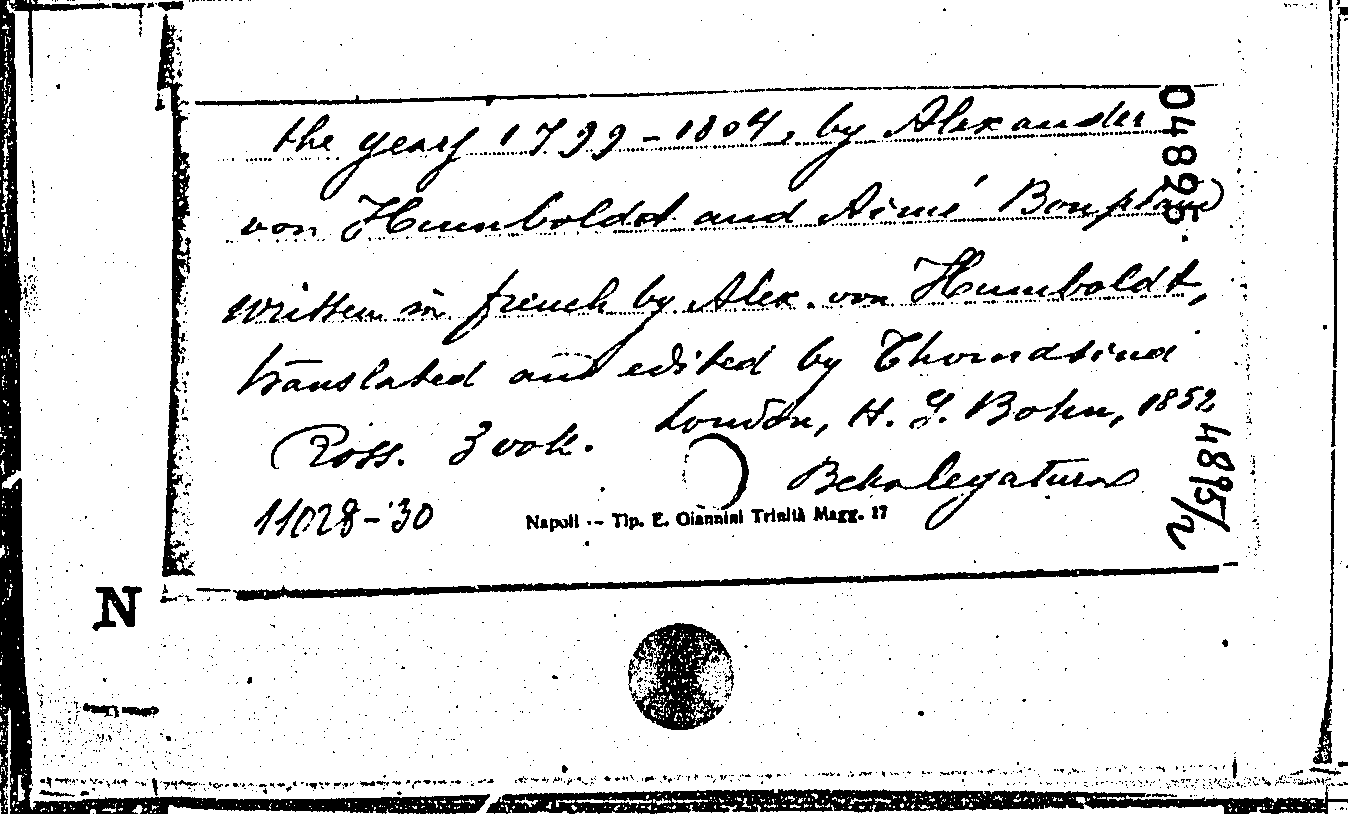 the years 1799-1804, by Alexander
von Humboldt and Aimé Bonpland
written in french by Alex. von Humboldt,
translated and edited by Thomasina
Ross. 3 voll. London, H. G. Bohn, 1852
Bella legatura
11028-'30
Napoli -- Tip. E. Giannini Trinità Magg. 17
04895
4895/2
N